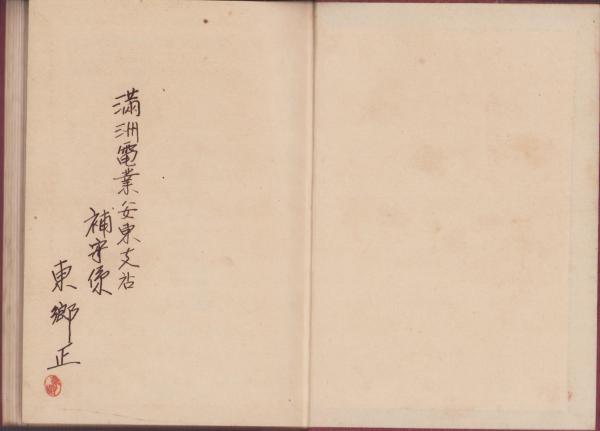 滿洲電業安東支店
補守係
東鄉正